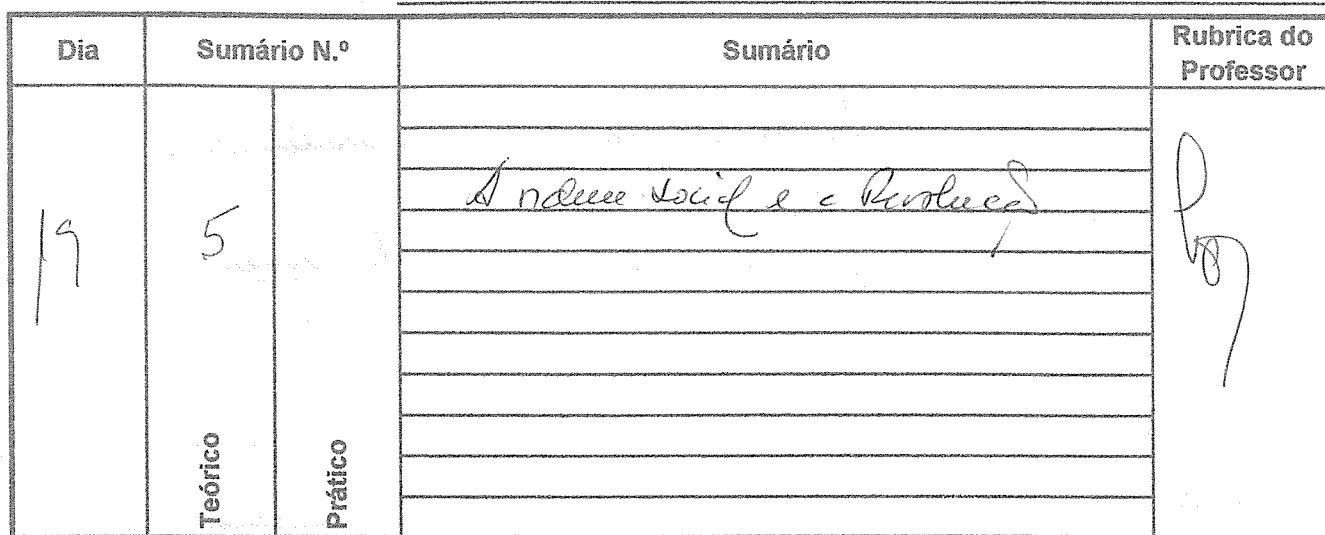 Dia Sumário N.º Sumário Rubrica do Professor
19 5 A ordem social e a Revolução
Teórico Prático